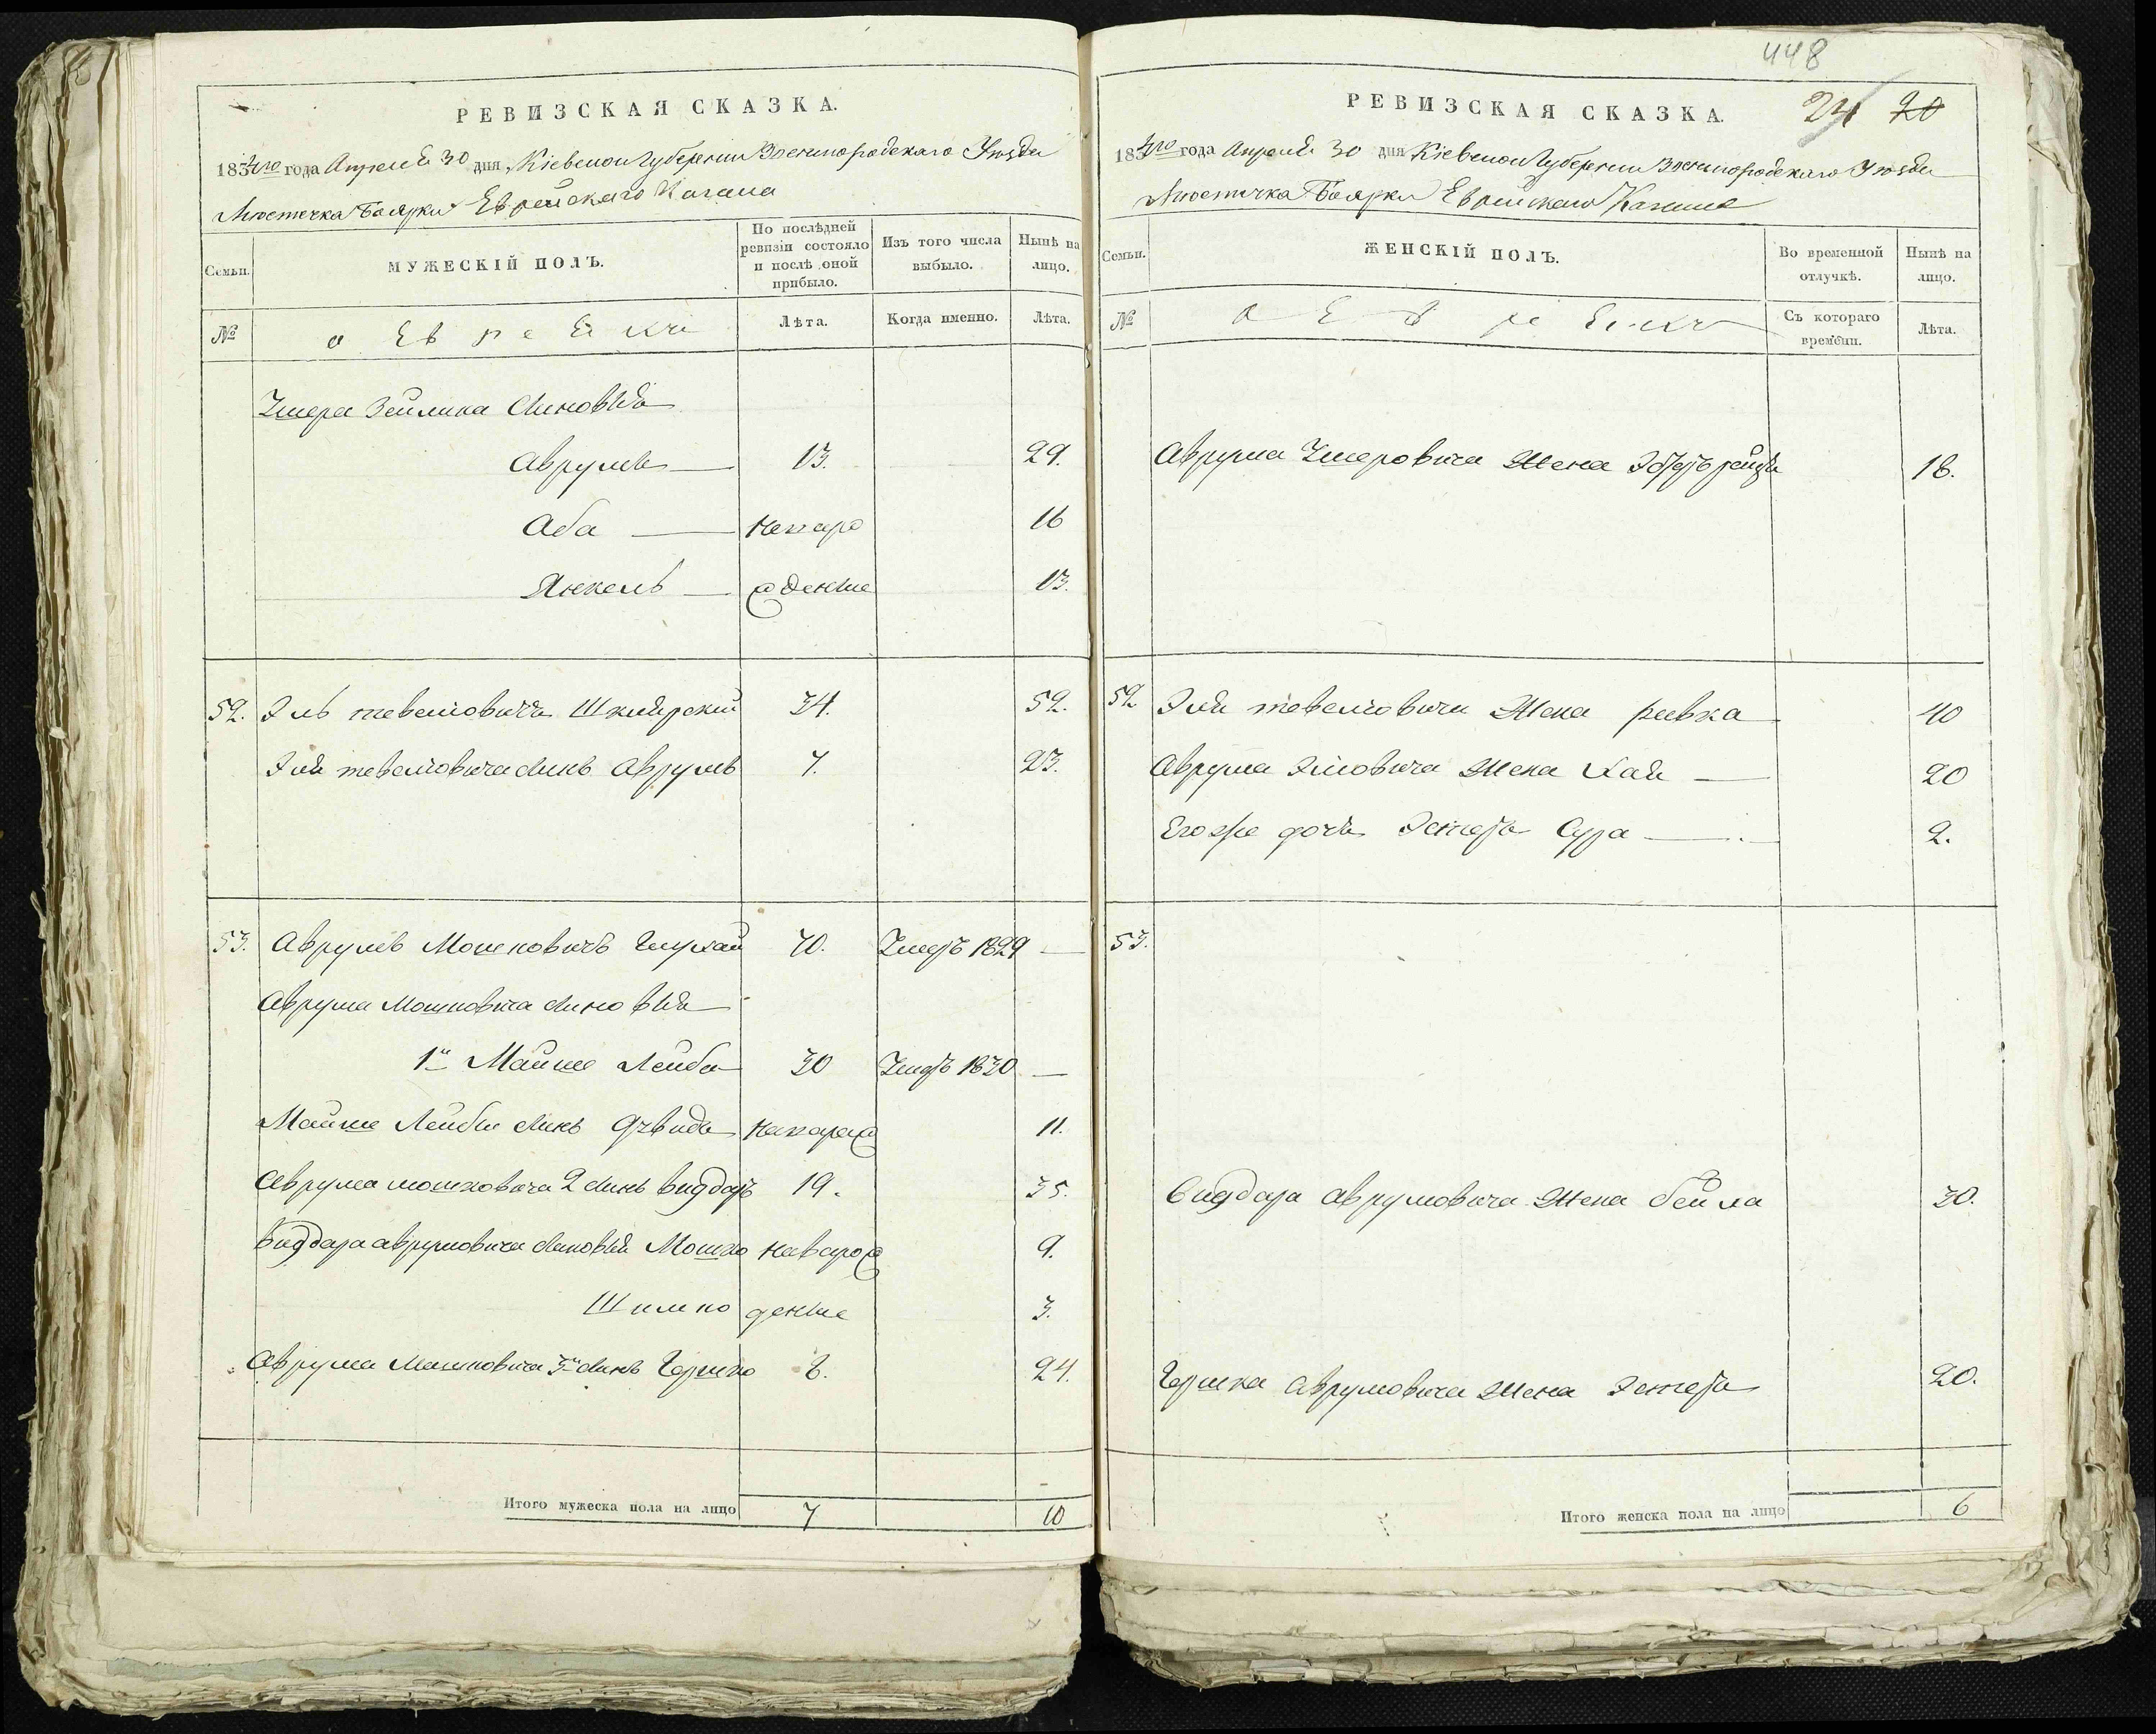 448
РЕВИЗСКАЯ СКАЗКА.
1834го года Апреля 30 дня Кіевской Губерніи Звенигородскаго Уѣзда
Мѣстечка Боярки Еврейскаго Кагала
Семьи.
МУЖЕСКІЙ ПОЛЪ.
По послѣдней ревизіи состояло и послѣ оной прибыло.
Изъ того числа выбыло.
Нынѣ на лицо.
№
о Евреяхъ
Лѣта.
Когда именно.
Лѣта.
Умера Зейлика Сыновья
Аврумъ 13. 29.
Аба неказ 16
Янкель 13.
52. Эль тевелiовичъ Шклярскій 34. 52.
Эля тевелiовича сынъ Аврумъ 7. 23.
53. Аврумъ Мошковичъ 70. Умеръ 1829 —
Аврума Мошковича сыновья
1й Майше Лейба 30 Умеръ 1830 —
Майше Лейбы сынъ Дувидъ 11.
Аврума мошковича 2 сынъ 19. 35.
аврумовича сыновья Мошко 9.
Шимко 3.
Аврума Мошковича 3й сынъ Гершко 8. 24.
Итого мужеска пола на лицо 7 10
РЕВИЗСКАЯ СКАЗКА. 24 20
1834го года Апреля 30 дня Кіевской Губерніи Звенигородскаго Уѣзда
Мѣстечка Боярки Еврейскаго Кагала
Семьи.
ЖЕНСКІЙ ПОЛЪ.
Во временной отлучкѣ.
Нынѣ на лицо.
№
о Еврейкахъ
Съ котораго времени.
Лѣта.
Аврума Умеровича Жена 18.
52 Эля тевелiовича Жена Ривка 40
Аврума Элiовича Жена Хая 20
Егоже дочь Эстеръ Сура 2.
53.
аврумовича Жена бейла 30.
Гершка аврумовича Жена Эстеръ 20.
Итого женска пола на лицо 6